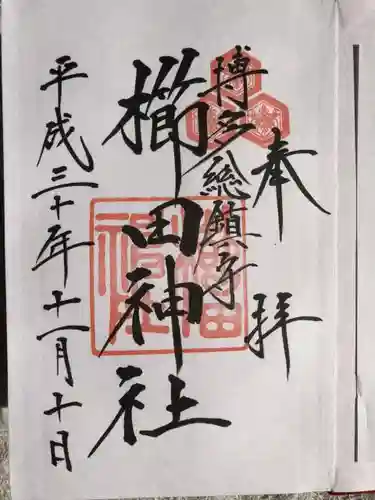 奉拝
博多総鎮守
櫛田神社
平成三十年十一月十日